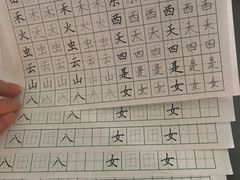 禾 禾 禾 禾 禾 东 东 东 东
火 火 火 火 火 西 西 西 西
虫 虫 虫 虫 虫 天 天 天 天
云 云 云 云 云 四 四 四 四
山 山 山 山 山 是 是 是 是
八 八 女 女
八 八 女 女
八 八 女 女
八 八 女 女
八 八 女 女